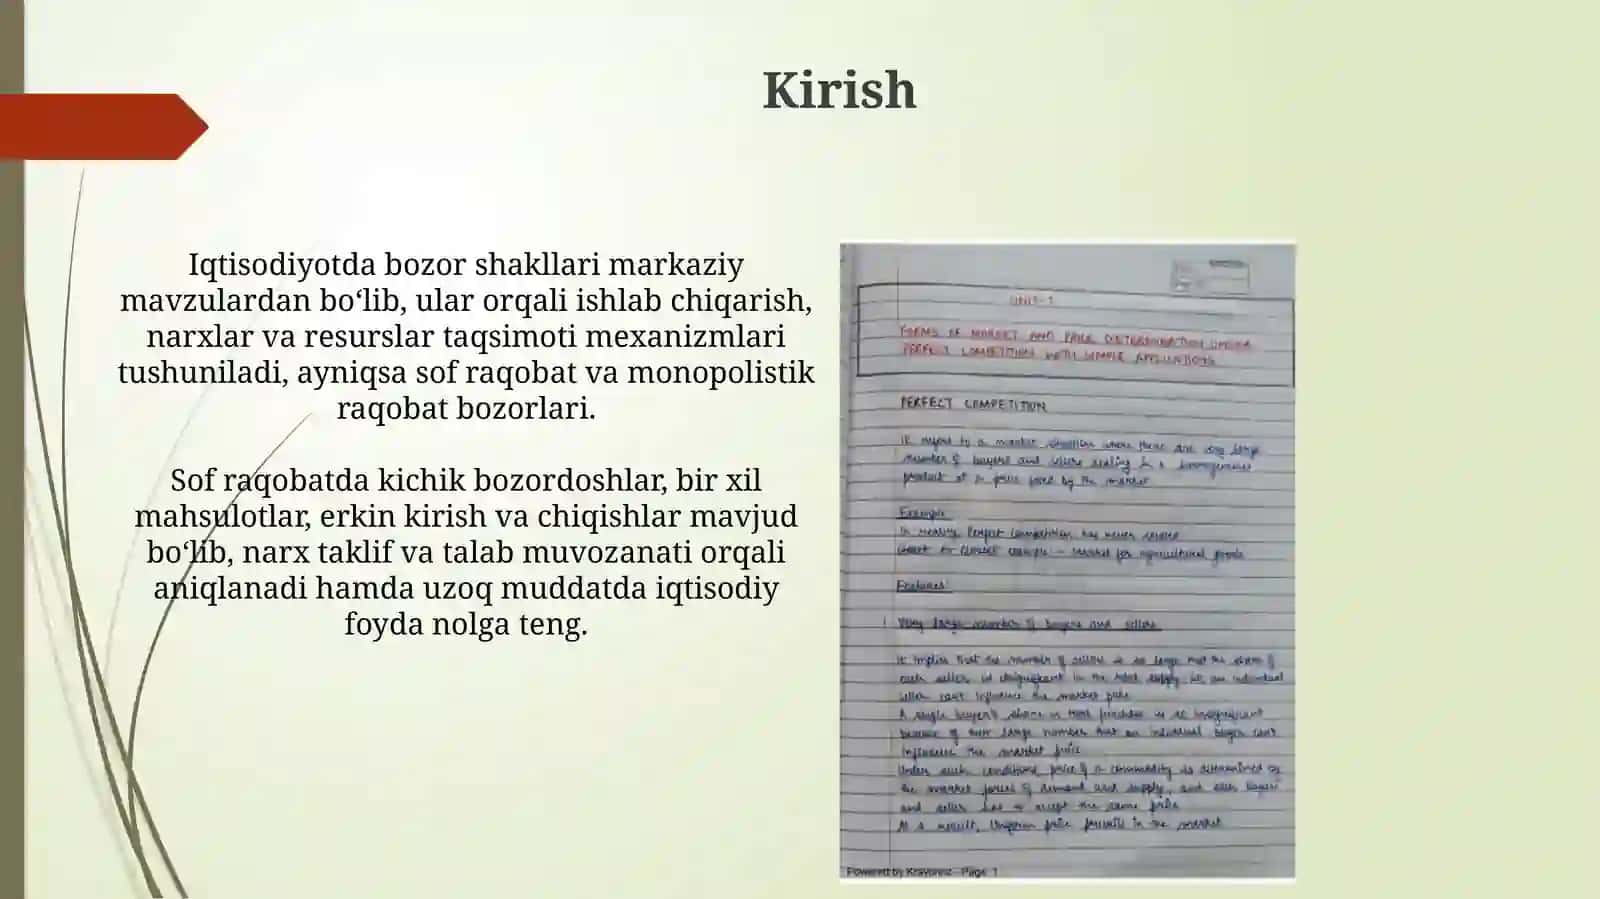 Kirish
Iqtisodiyotda bozor shakllari markaziy
mavzulardan bo‘lib, ular orqali ishlab chiqarish,
narxlar va resurslar taqsimoti mexanizmlari
tushuniladi, ayniqsa sof raqobat va monopolistik
raqobat bozorlari.
Sof raqobatda kichik bozordoshlar, bir xil
mahsulotlar, erkin kirish va chiqishlar mavjud
bo‘lib, narx taklif va talab muvozanati orqali
aniqlanadi hamda uzoq muddatda iqtisodiy
foyda nolga teng.
UNIT-1
FORMS OF MARKET AND PRICE DETERMINATION UNDER
PERFECT COMPETITION WITH SIMPLE APPLICATIONS
PERFECT COMPETITION
It refers to a market situation where there are very large
number of buyers and sellers dealing in a homogeneous
product at a price fixed by the market
Example
In reality, Perfect competition has never existed
closest example - market for agricultural goods
Features:
1 Very large number of buyers and sellers
It implies that the number of sellers is so large that the share of
each seller is insignificant in the total supply an individual
seller can't influence the market price
A single buyer's share in total purchase is so insignificant
because of their large number that an individual buyer can't
influence the market price
Under such conditions, price of a commodity is determined by
the market forces of demand and supply, and each buyer
and seller has to accept the same price
As a result, Uniform price prevails in the market
Powered by - Page 1